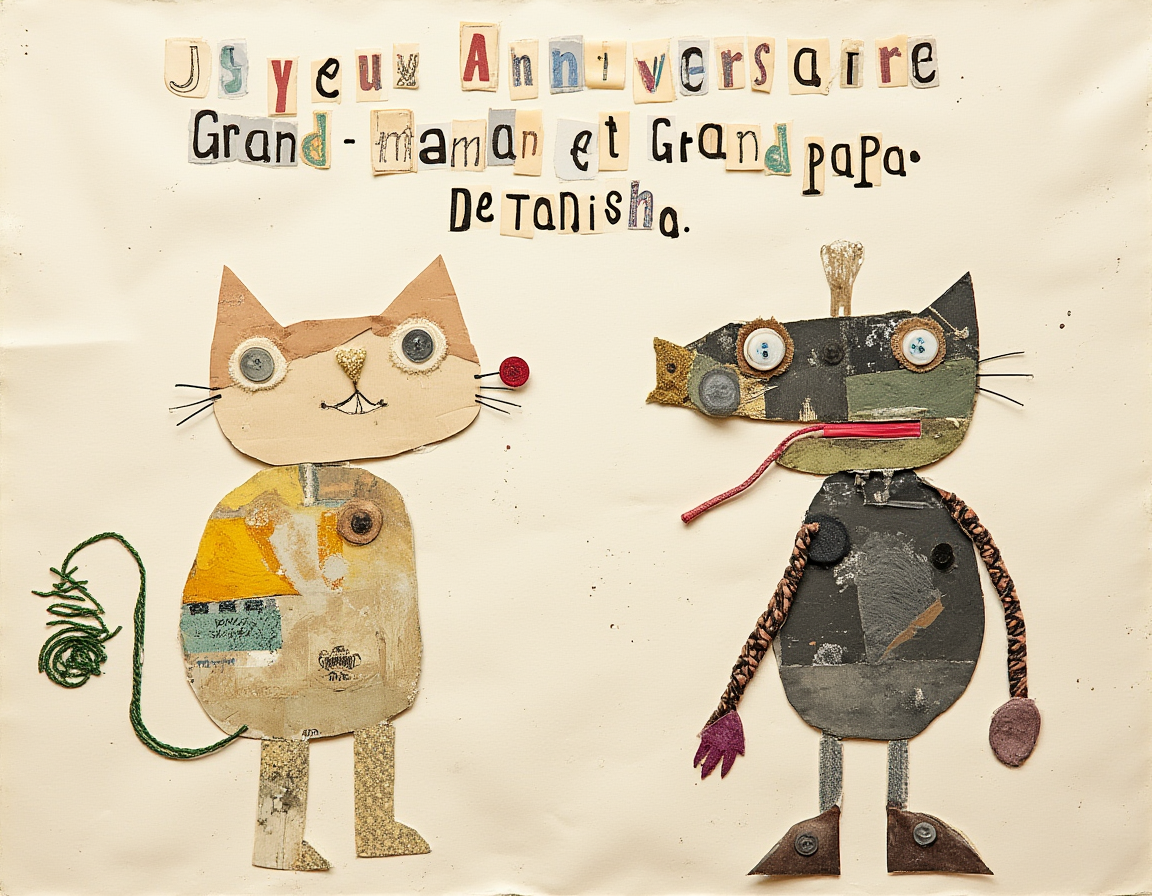 Anniversaire
Grand-maman et Grand papa.
De Tanisha.